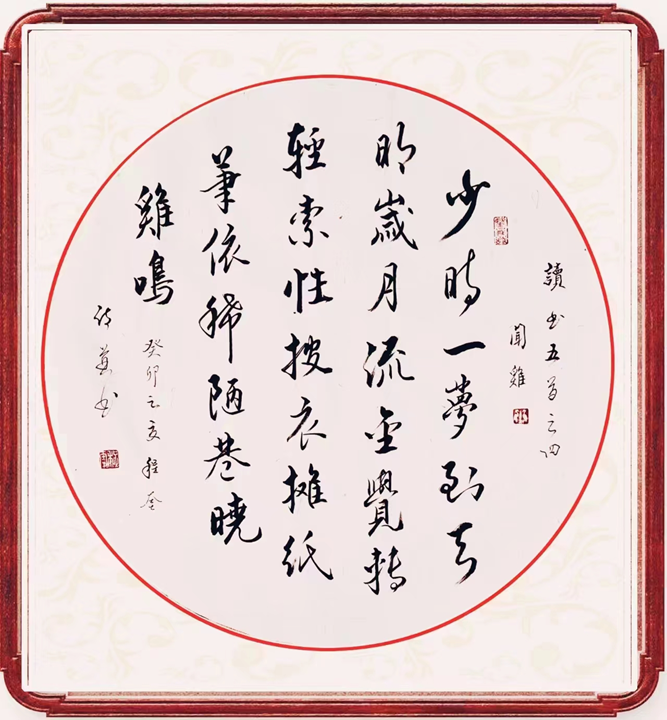 讀書五首之四
聞雞
少時一夢到天
明歲月流金覺轉
輕索性披衣攤紙
筆依稀陋巷曉
雞鳴
癸卯之夏程奎
書